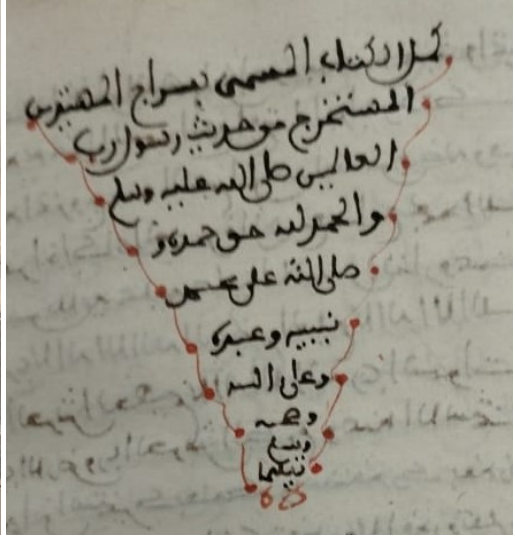 كمل الكتاب المسمى بسراج المهتدين
المستخرج من حديث رسول رب
العالمين صلى الله عليه وسلم
والحمد لله حق حمده و
صلى الله على محمد
نبييه وعبده
وعلى اله
وصحبه
وسلم
تسليما